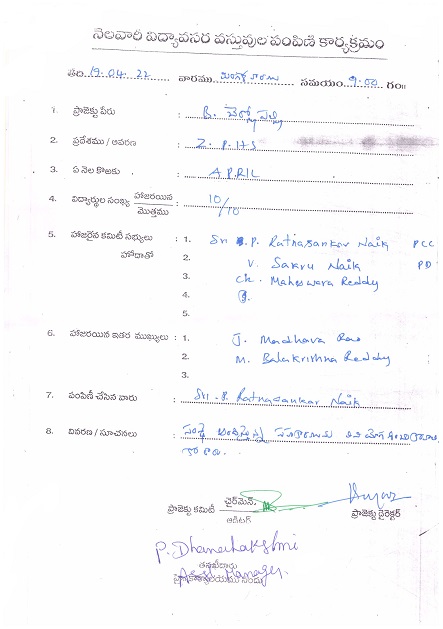 నెలవారీ విద్యావసర వస్తువుల పంపిణి కార్యక్రమం
తేది. 19.04.22 వారము మంగళవారం సమయం 9.00 గం॥
1. ప్రాజెక్టు పేరు : B.
2. ప్రదేశము / ఆవరణ : Z.P.H.S
3. ఏ నెల కొఱకు : APRIL
4. విద్యార్థుల సంఖ్య హాజరయిన / మొత్తము : 10/10
5. హాజరైన కమిటీ సభ్యులు : 1. Sri P. Ratnasankar Naik PCC
హోదాతో 2. V. Sakru Naik PD
3. Ch. Maheswara Reddy
4.
5.
6. హాజరయిన ఇతర ముఖ్యులు : 1. J. Madhava Rao
2. M. Balakrishna Reddy
3.
7. పంపిణీ చేసిన వారు : Sri. P. Ratnasankar Naik
8. వివరణ / సూచనలు :
ప్రాజెక్టు కమిటీ ఛైర్‌మెన్ ప్రాజెక్టు డైరెక్టర్
ఆడిటర్
P. Dhanalakshmi
తనిఖీదారు
Manager